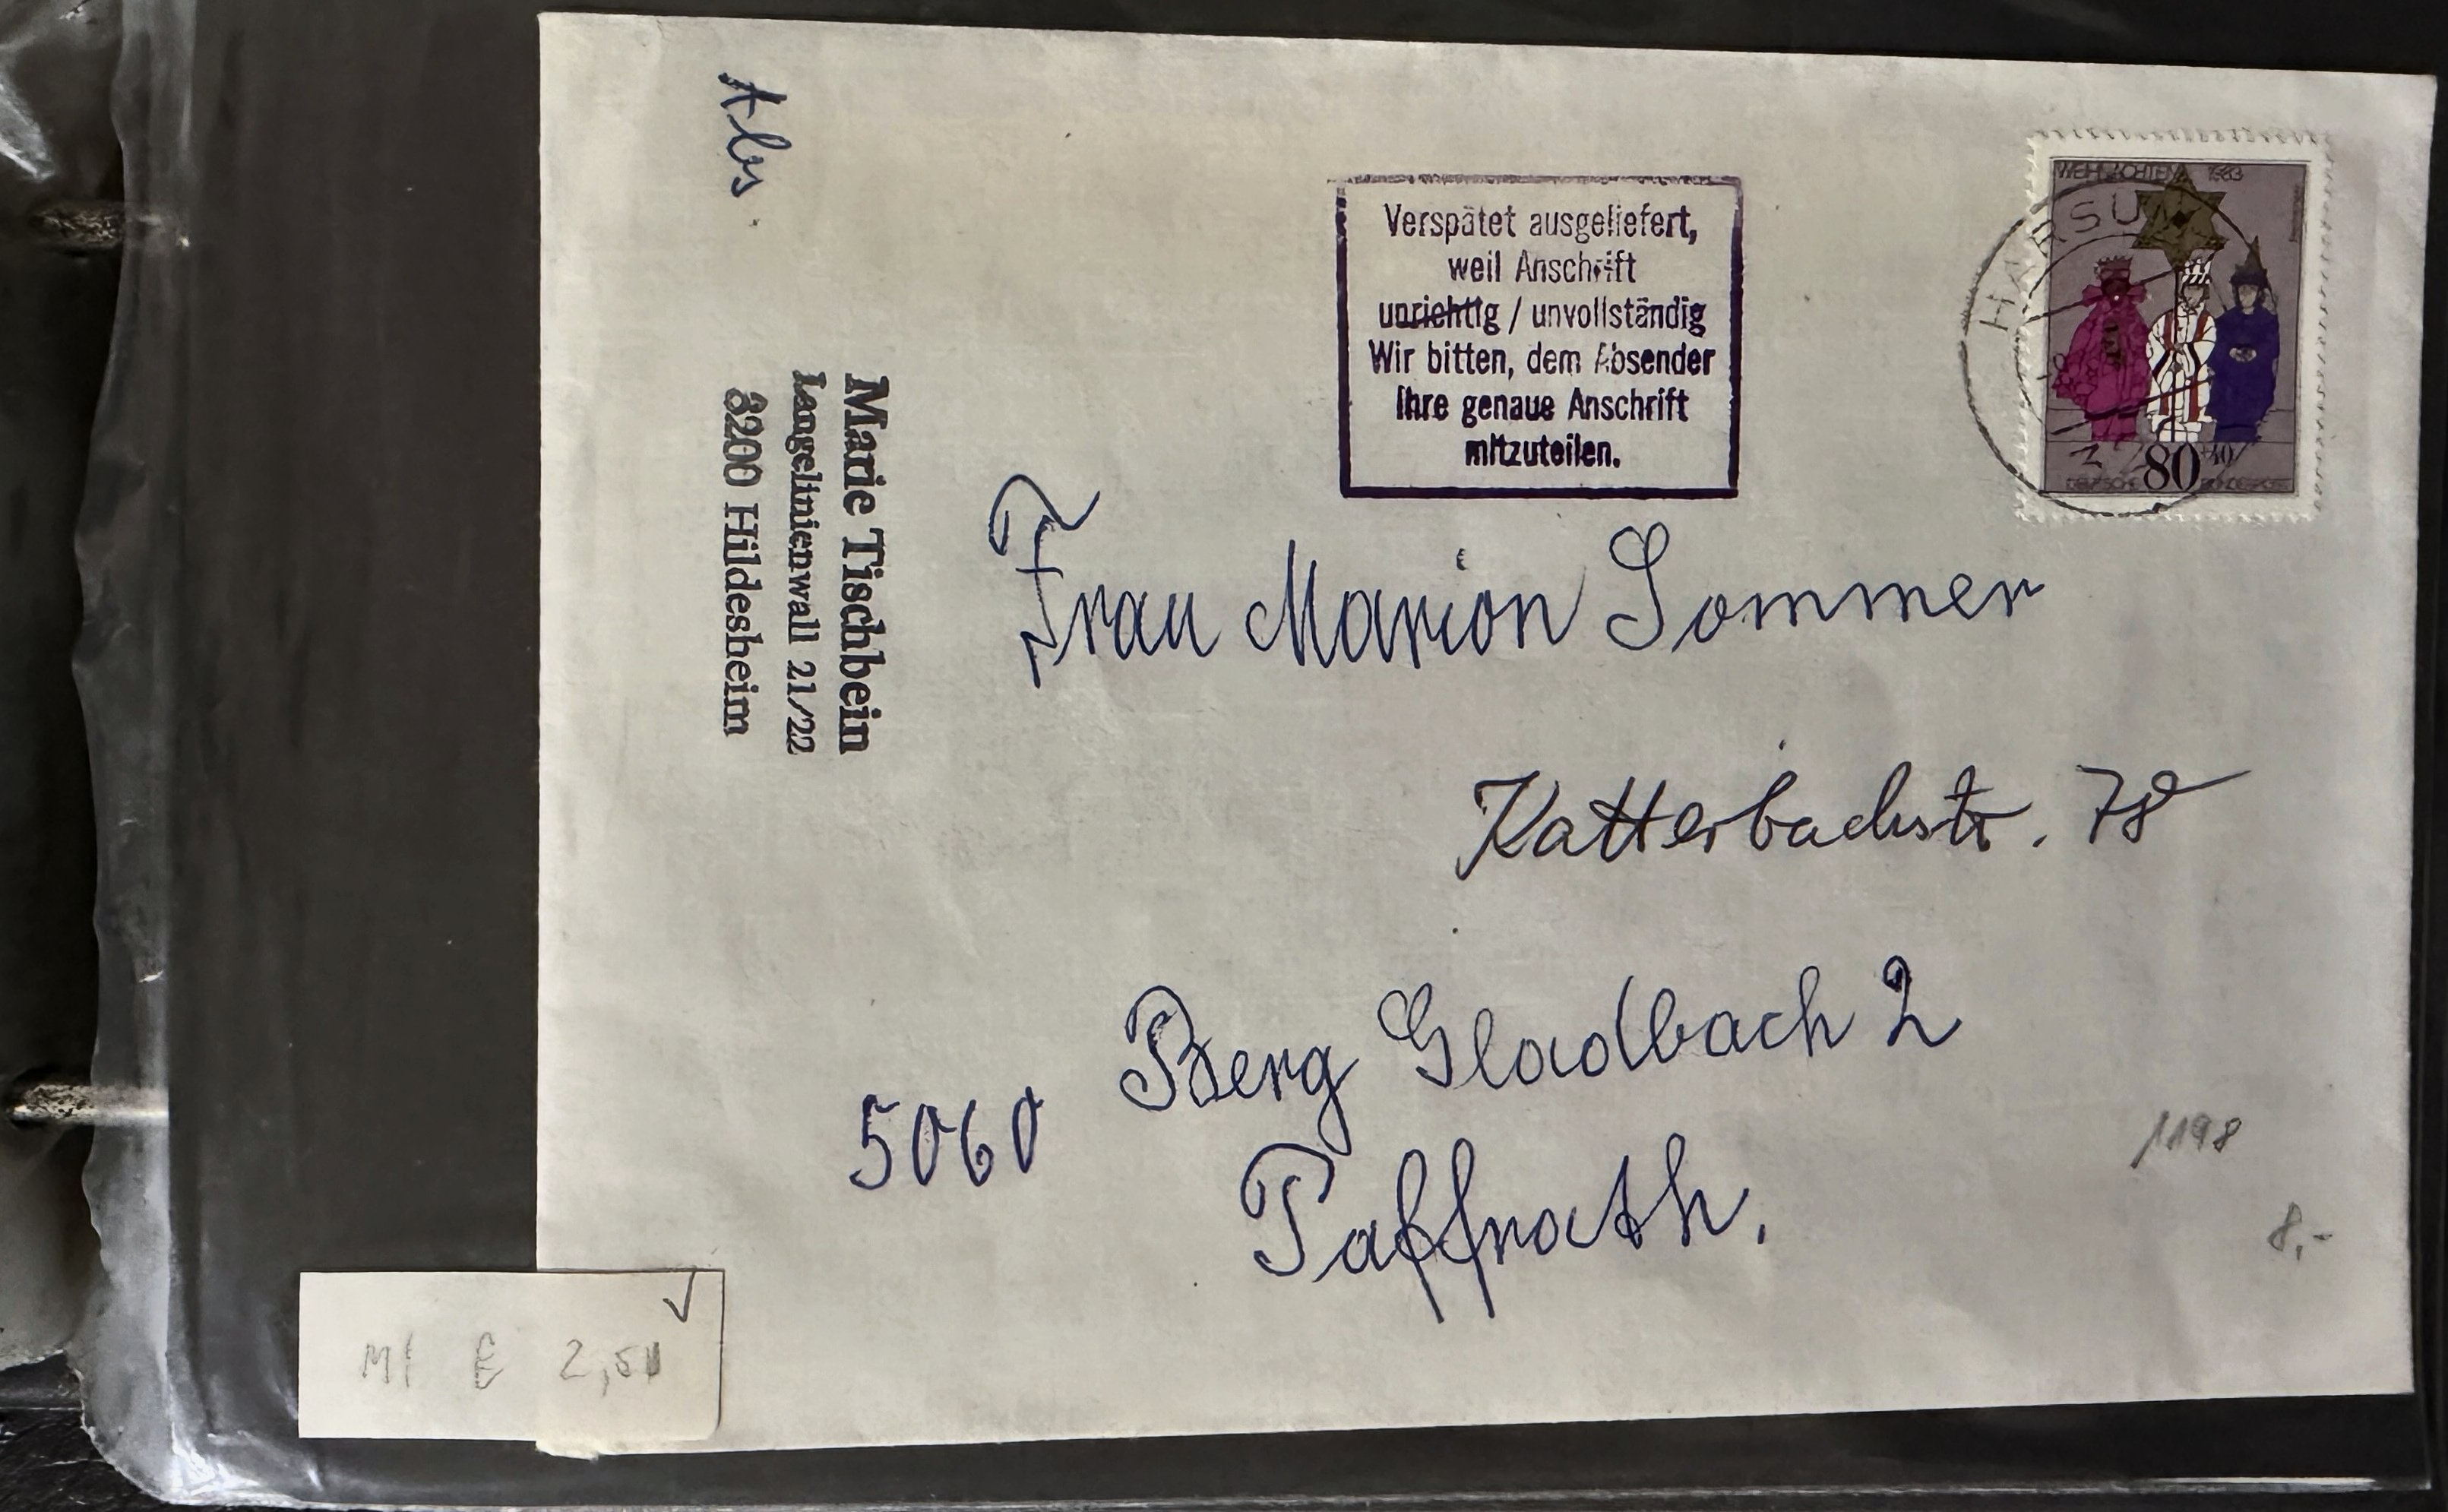 Abs.
Marie Tischbein
Langelinienwall 21/22
3200 Hildesheim
Verspätet ausgeliefert,
weil Anschrift
unrichtig / unvollständig
Wir bitten, dem Absender
Ihre genaue Anschrift
mitzuteilen.
WEIHNACHTEN 1983
HARSUM
80+40
DEUTSCHE BUNDESPOST
Frau Marion Sommer
Katterbachstr. 78
5060 Berg Gladbach 2
Paffrath.
1198
8,-
MI E 2,50